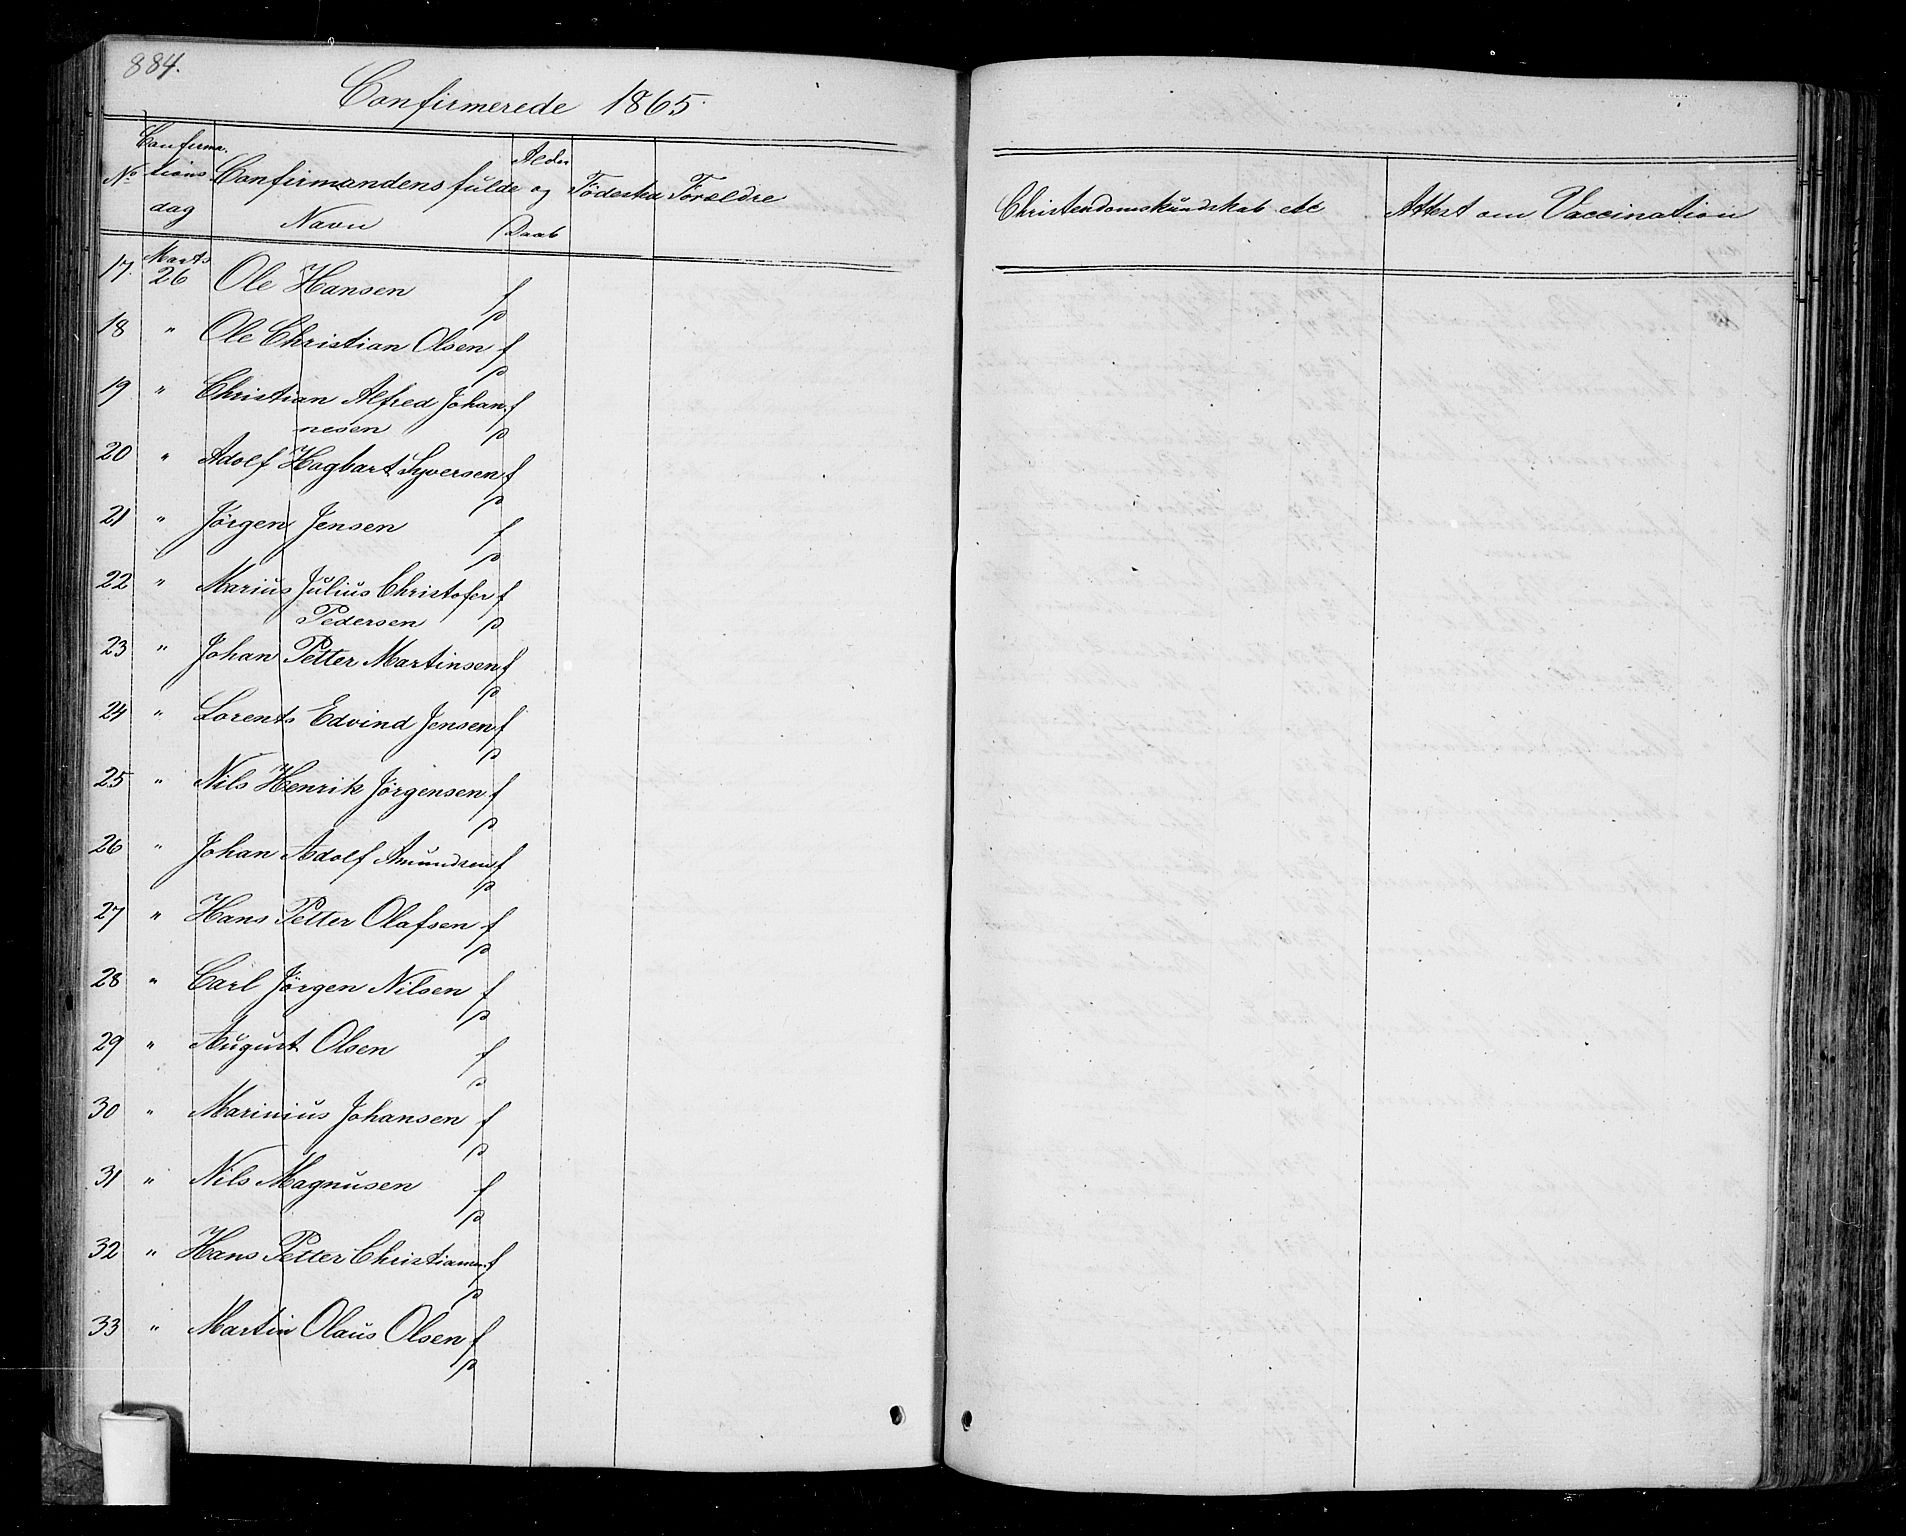 884.
Confirmerede 1865.
No Confirmationsdag Confirmandens fulde Navn Alder og Daab Födested Forældre Christendomskundskab etc Attest om Vaccination
17. Marts 26 Ole Hansen f
p
18 " Ole Christian Olsen f
p
19 " Christian Alfred Johan- f
nesen p
20 " Adolf Hagbart Syversen f
p
21 " Jörgen Jensen f
p
22 " Marius Julius Christofer f
Pedersen p
23 " Johan Petter Martinsen f
p
24 " Lorents Edvind Jensen f
p
25 " Nils Henrik Jörgensen f
p
26 " Johan Adolf Amundsen f
p
27 " Hans Petter Olafsen f
p
28 " Carl Jörgen Nilsen f
p
29 " August Olsen f
p
30 " Marinius Johansen f
p
31 " Nils Magnusen f
p
32 " Hans Petter Christiansen f
p
33 " Martin Olaus Olsen f
p